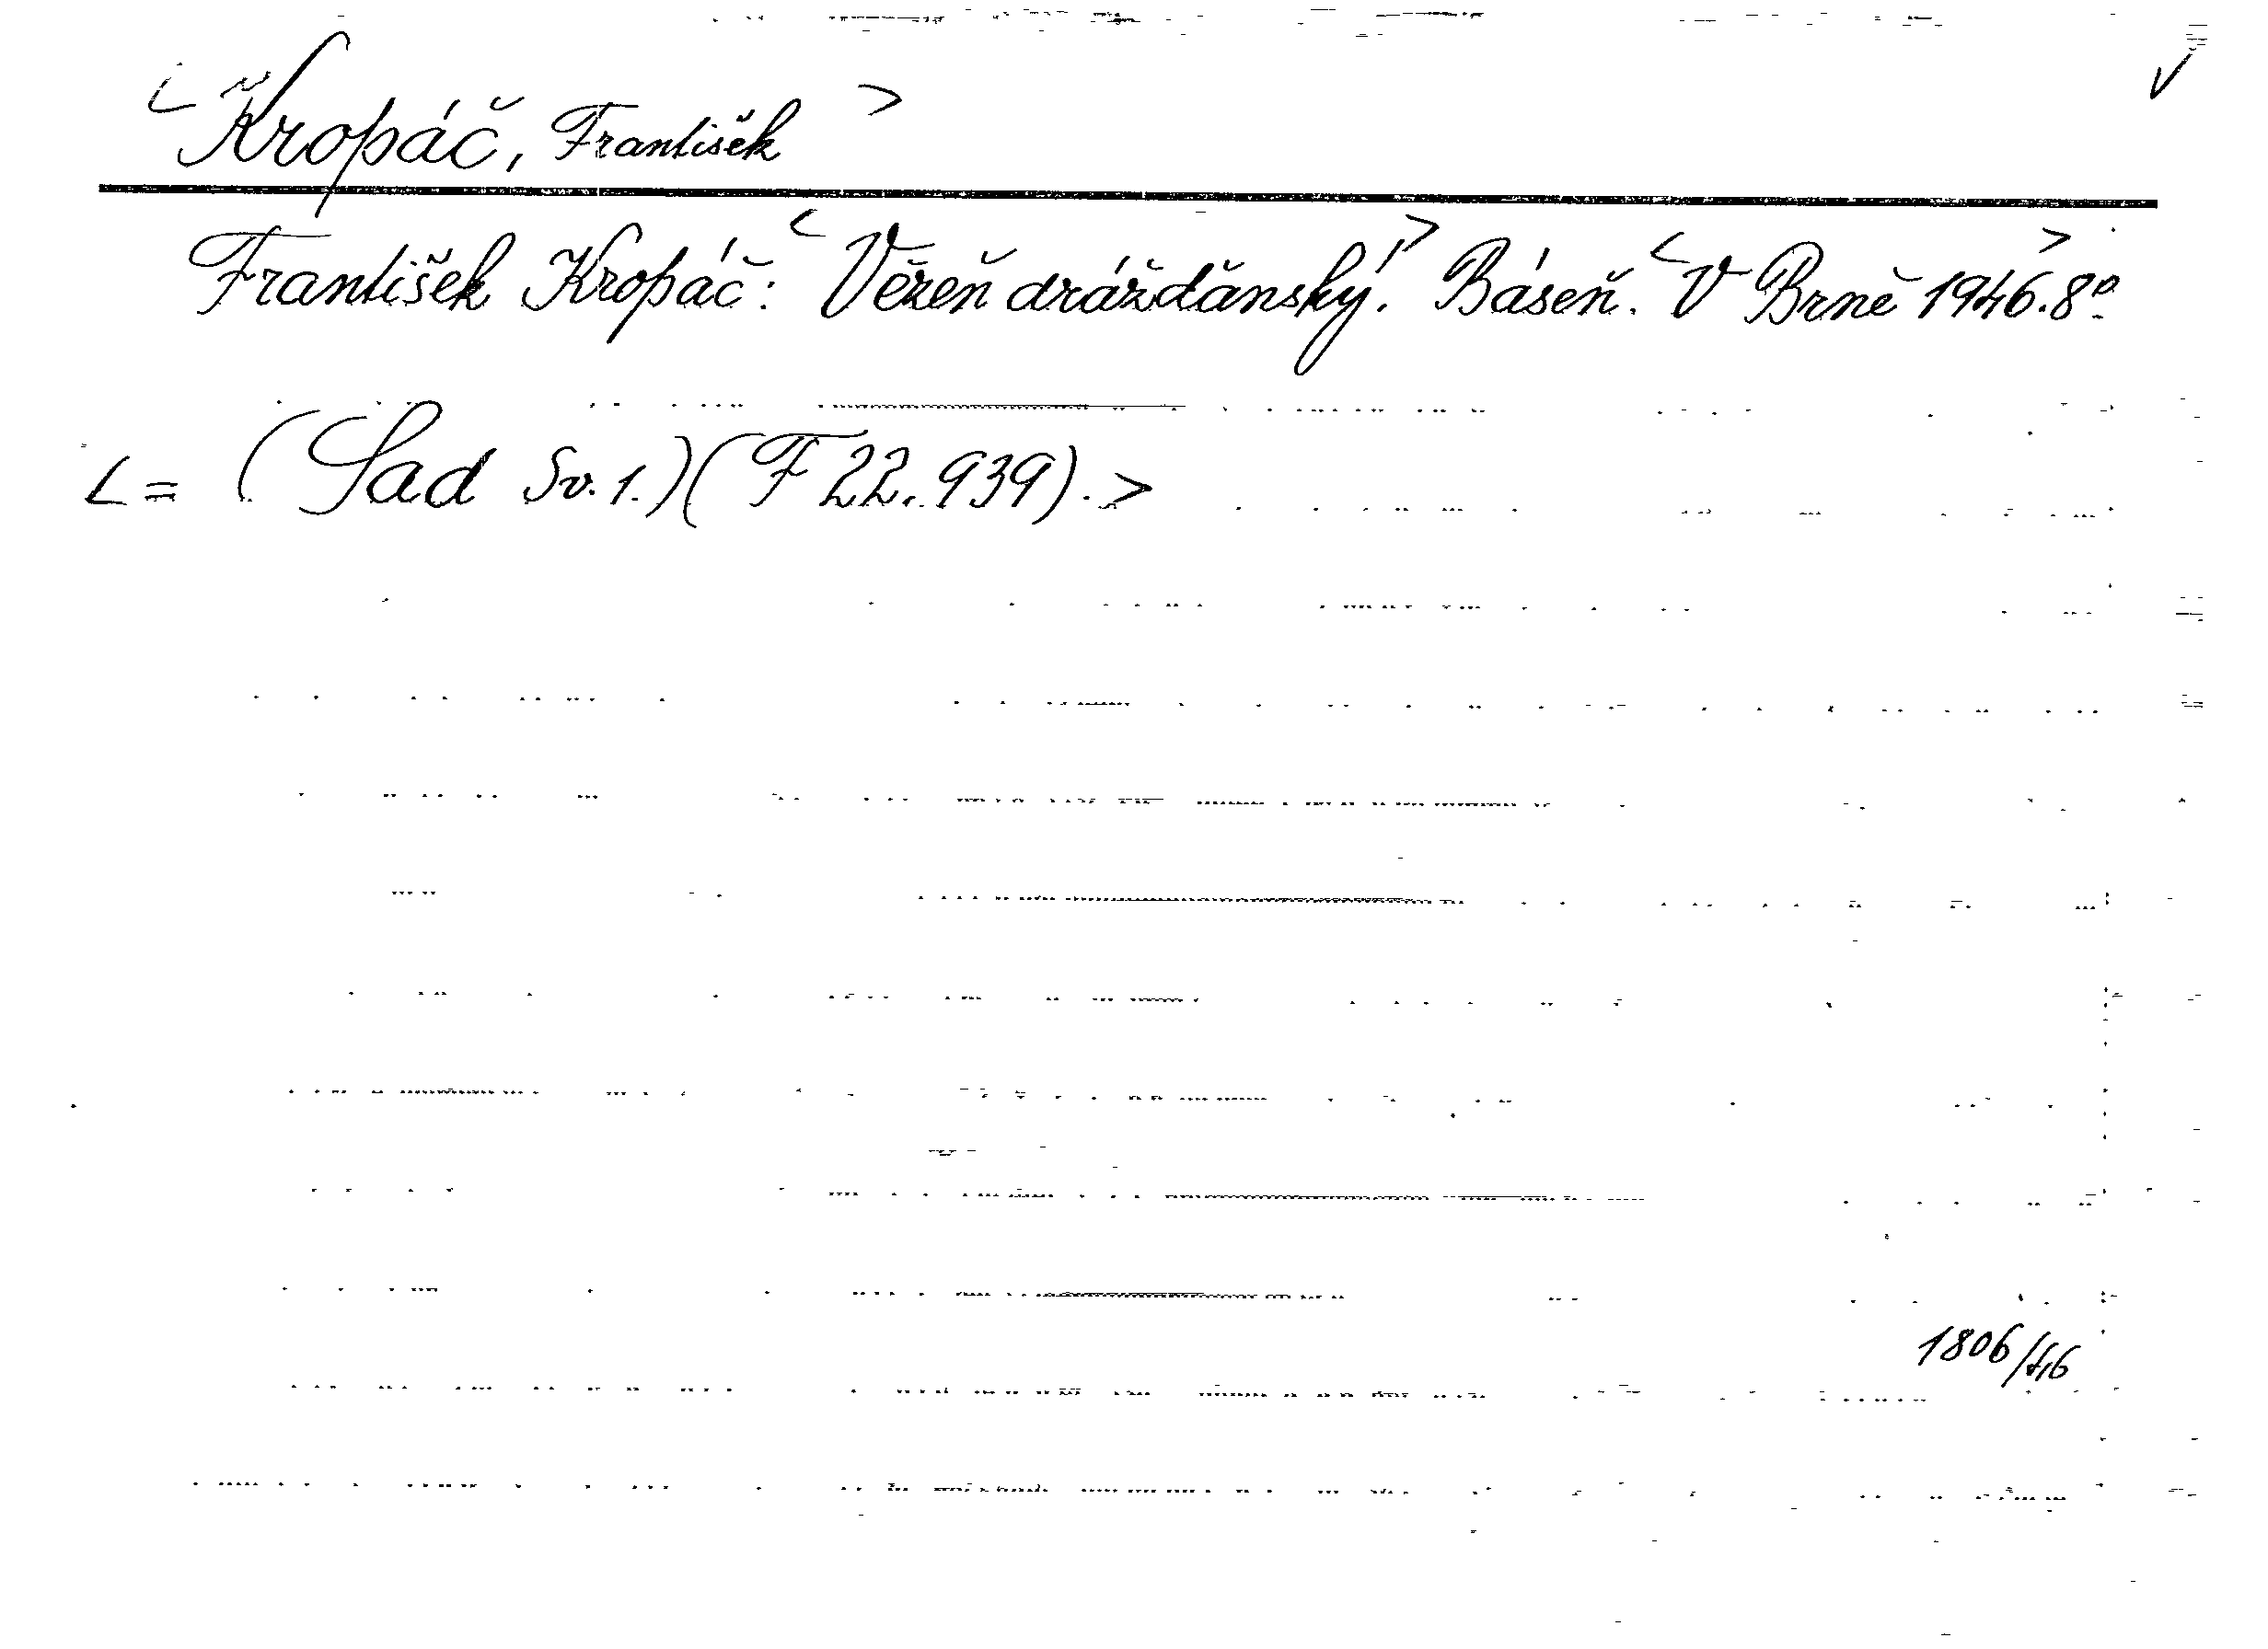 < Kropáč, František >
František Kropáč: < Vězeň drážďánský. > Báseň. < V Brně 1946. > 8°.
< = (Sad Sv. 1.) (F 22.939). >
1806/46